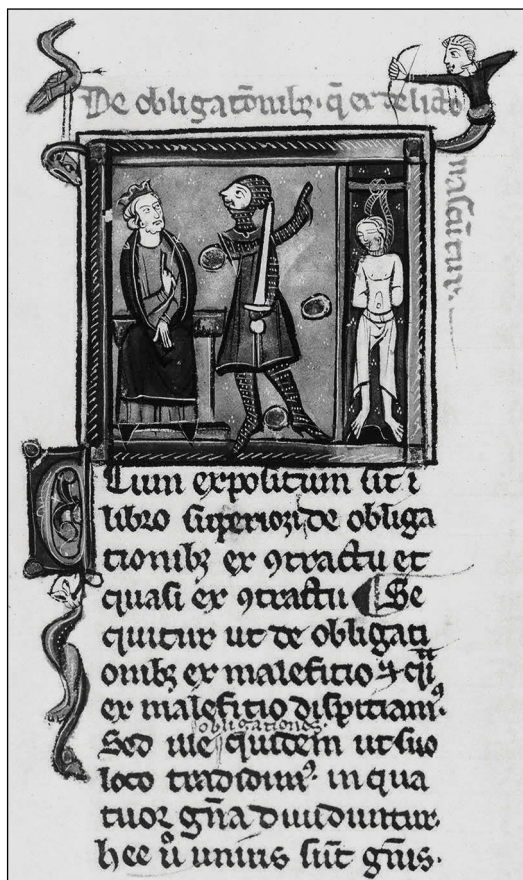 De obligatōnibꝫ · q̄ ex delicto
nascūtur.
Cum expositum sit i
libro superiori de obliga
tionibꝫ ex ꝯtractu et
quasi ex ꝯtractu ¶ Se
quitur ut de obligati
onibꝫ ex maleficio ⁊ q̄
ex maleficio dispiciamꝰ.
obligationes.
Sed ille quidem ut suo
loco tradidimꝰ. in qua
tuor gn̄a diuiduntur.
hee ů unius sūt gn̄is.